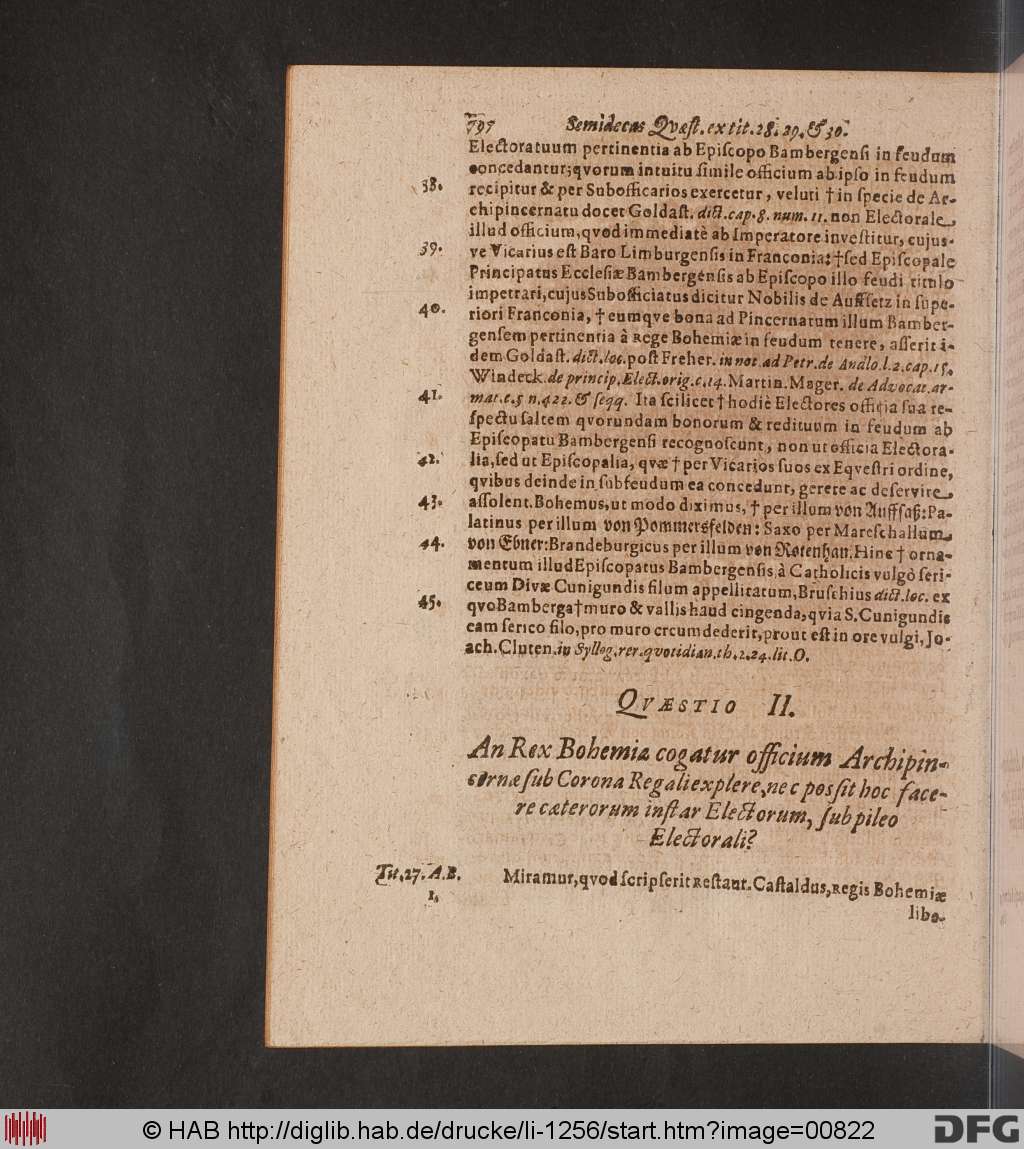 797 Semidecas Qvæst. ex tit. 28. 29. & 30.
Electoratuum pertinentia ab Episcopo Bambergensi in feudum
concedantur; qvorum intuitu simile officium ab ipso in feudum
38. recipitur & per Subofficarios exercetur, veluti † in specie de Ar-
chipincernatu docet Goldast. dict. cap. 8. num. 11. non Electorale
illud officium, qvod immediatè ab Imperatore investitur, cujus-
39. ve Vicarius est Baro Limburgensis in Franconia: † sed Episcopale
Principatus Ecclesiæ Bambergensis ab Episcopo illo feudi titulo
impetrari, cujus Subofficiatus dicitur Nobilis de Auffsetz in supe-
40. riori Franconia, † eumqve bona ad Pincernatum illum Bamber-
gensem pertinentia à Rege Bohemiæ in feudum tenere, asserit i-
dem Goldast. dict. loc. post Freher. in not. ad Petr. de Andlo. l. 2. cap. 15.
Windeck. de princip. Elect. orig. c. 14. Martin. Mager. de Advocat. ar-
41. mat. c. 5 n. 422. & seqq. Ita scilicet † hodiè Electores officia sua re-
spectu saltem qvorundam bonorum & redituum in feudum ab
Episcopatu Bambergensi recognoscunt, non ut officia Electora-
42. lia, sed ut Episcopalia, qvæ † per Vicarios suos ex Eqvestri ordine,
qvibus deinde in subfeudum ea concedunt, gerere ac deservire
43. assolent. Bohemus, ut modo diximus, † per illum von Auffsaß: Pa-
latinus per illum von Pommersfelden: Saxo per Mareschallum
44. von Ebner: Brandeburgicus per illum von Rotenhan. Hinc † orna-
mentum illud Episcopatus Bambergensis à Catholicis vulgò seri-
ceum Divæ Cunigundis filum appellitatum, Bruschius dict. loc. ex
45. qvo Bamberga † muro & vallis haud cingenda, qvia S. Cunigundis
eam serico filo, pro muro crcumdederit, prout est in ore vulgi, Jo-
ach. Cluten. in Syllog. rer. qvotidian. th. 2. 24. lit. O.
QVÆSTIO II.
An Rex Bohemiæ cogatur officium Archipin-
cernæ sub Corona Regali explere, nec possit hoc face-
re cæterorum instar Electorum, sub pileo
Electorali?
Tit. 27. A. B. Miramur, qvod scripserit Restaur. Castaldus, Regis Bohemiæ
1. libe-
© HAB http://diglib.hab.de/drucke/li-1256/start.htm?image=00822
DFG